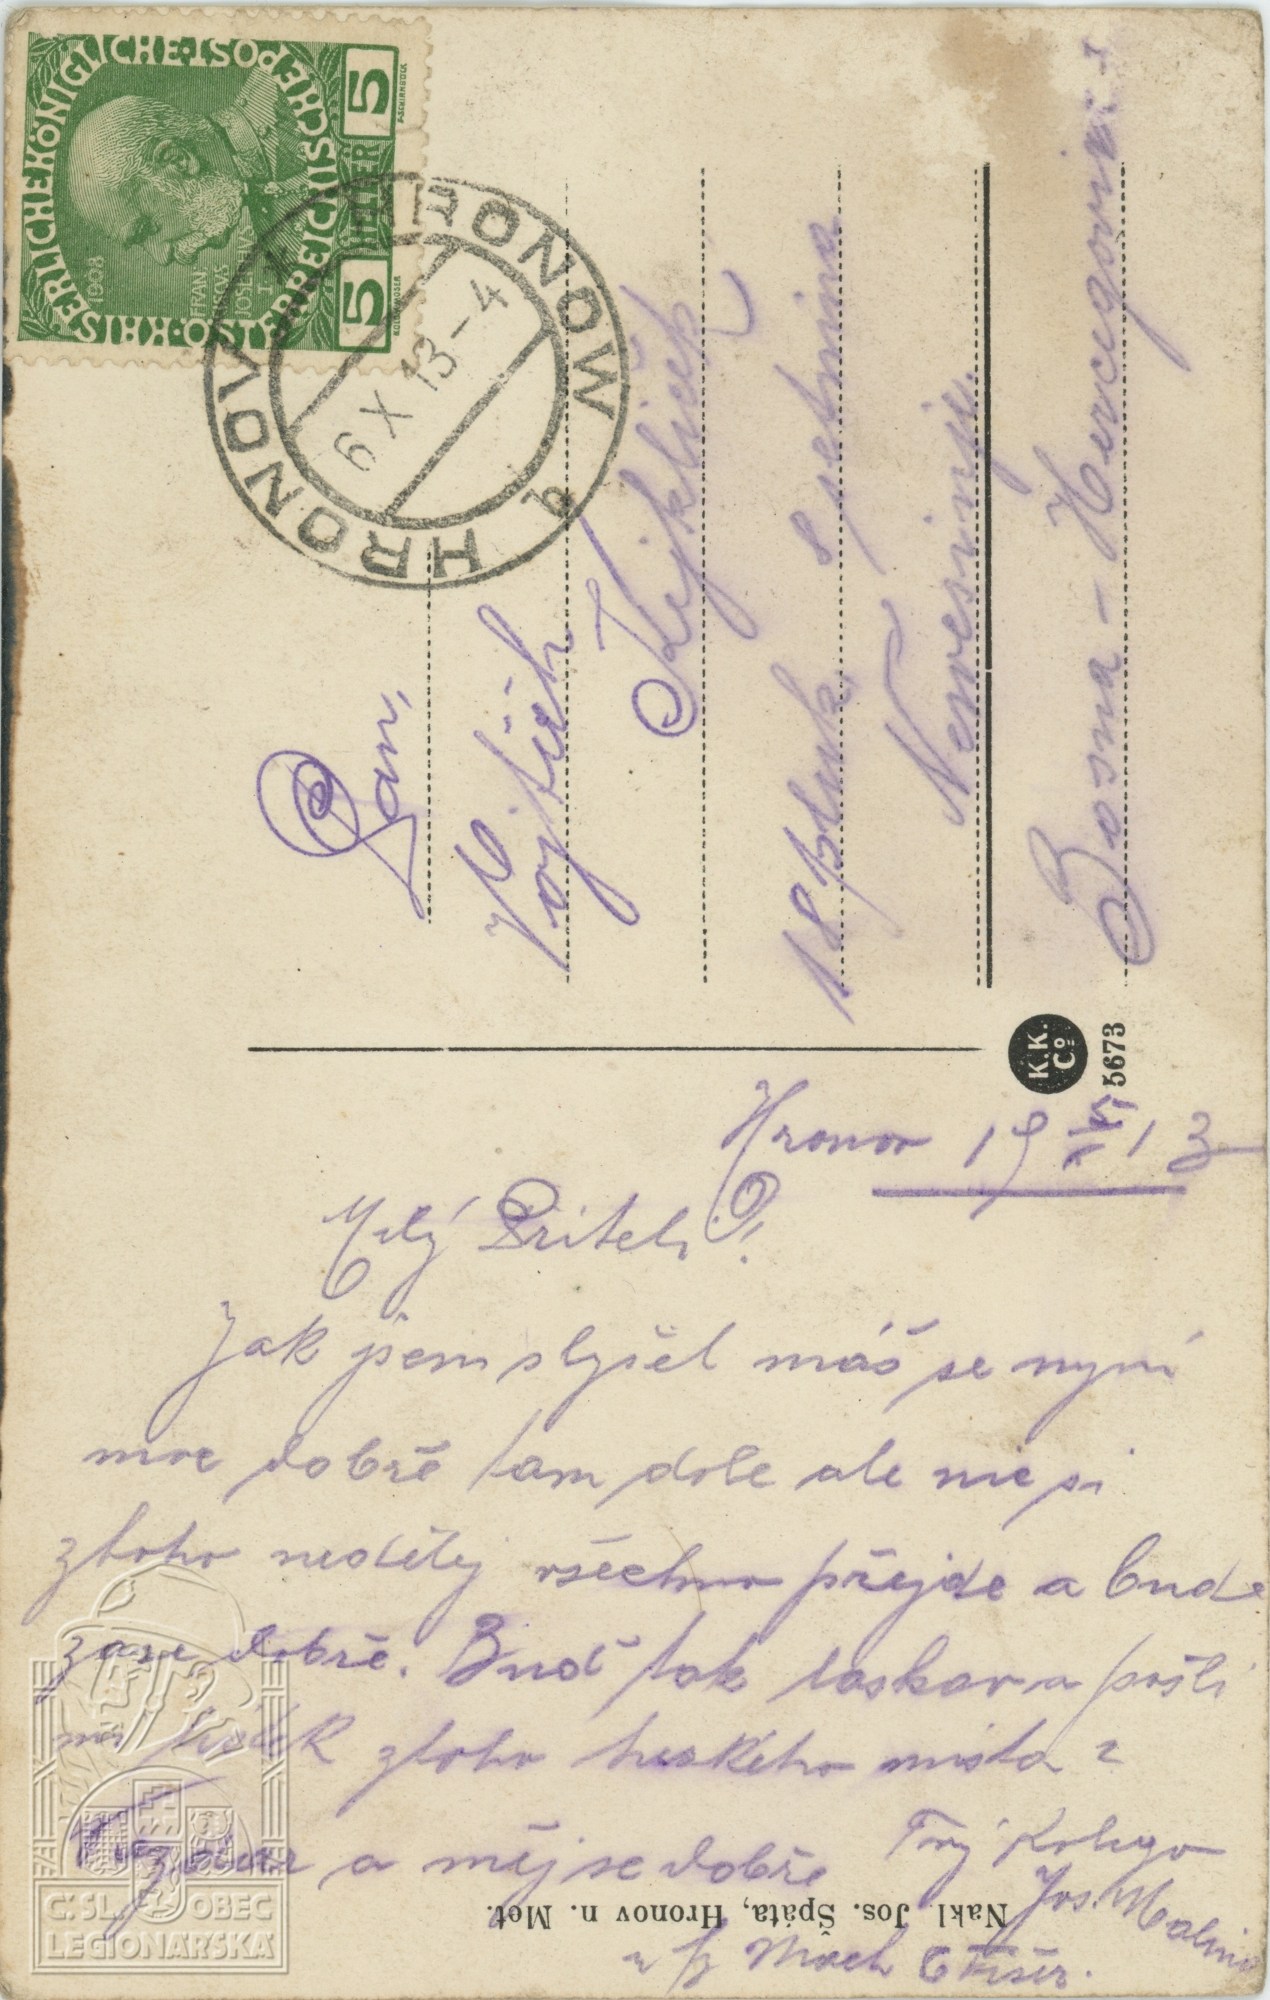 KAISERLICHE KÖNIGLICHE ÖSTERREICHISCHE POST
1908
FRAN CISCVS JOSEPHVS I
5 HELLER 5
HRONOV HRONOW
6 X 13-4
Pan,
Vojtěch
Kejklíček
18 pluk, 8 setnina
Nevesinje.
Bosna-Hercegovina
K.K. Co
5673
Hronov 19 13
Milý Příteli!
Jak jsem slyšel máš se nyní
moc dobře tam dole ale nic si
ztoho nedělej všechno přejde a bude
zase dobře. Buď tak laskav a pošli
mi ztoho hezkého místa
a měj se dobře Tvý Kolega
Jos. Malina
Nakl. Jos. Špáta, Hronov n. Met.
ČSL. OBEC
LEGIONÁŘSKÁ